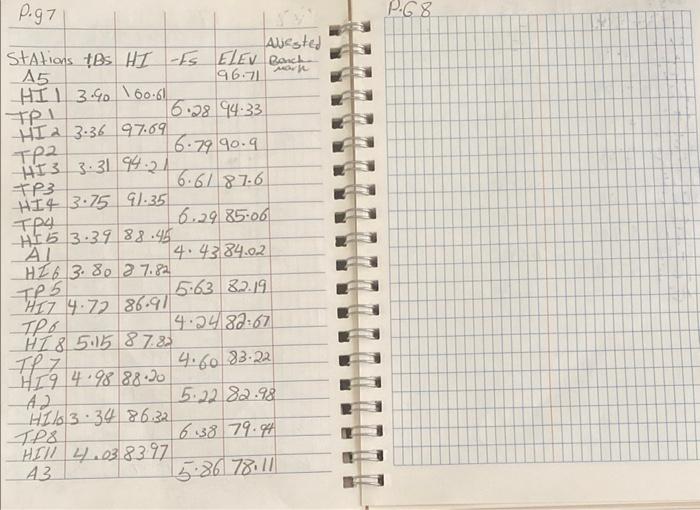 P.g7
Stations +Bs HI -Fs ELEV Ajusted Bench mark
A5 96.71
HI1 3.90 100.61
TP1 6.28 94.33
HI2 3.36 97.69
TP2 6.79 90.9
HI3 3.31 94.21
TP3 6.61 87.6
HI4 3.75 91.35
TP4 6.29 85.06
HI5 3.39 88.45
A1 4.43 84.02
HI6 3.80 87.82
TP5 5.63 82.19
HI7 4.72 86.91
TP6 4.24 82.67
HI8 5.15 87.82
TP7 4.60 83.22
HI9 4.98 88.20
A2 5.22 82.98
HI10 3.34 86.32
TP8 6.38 79.94
HI11 4.03 8397
A3 5.86 78.11
P.G8